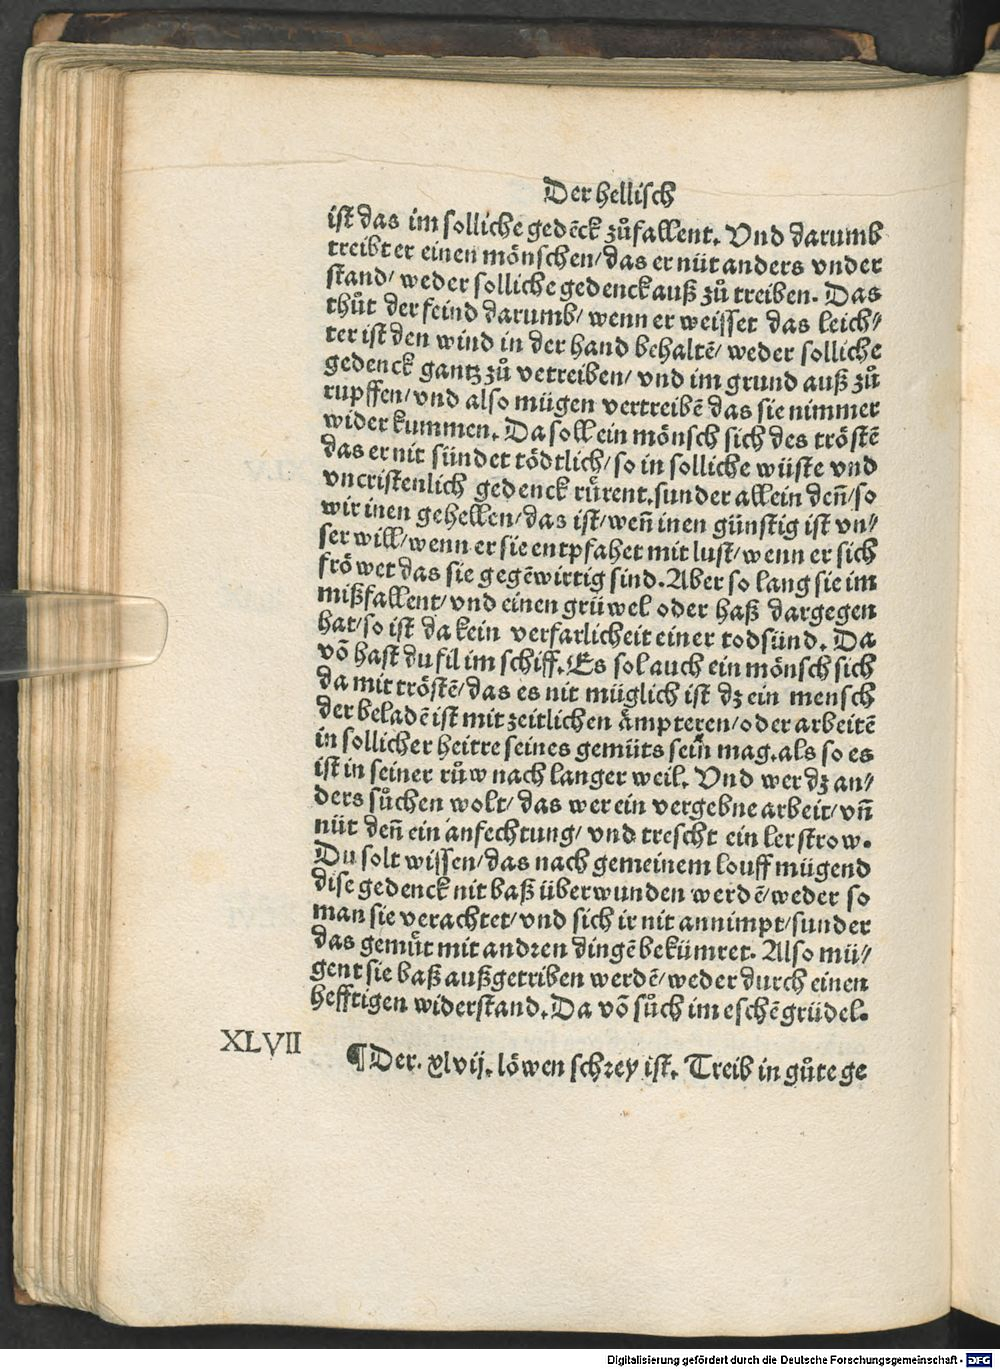 Der hellisch
ist das im solliche gedēck zůfallent. Vnd darumb
treibt er einen mönschen/ das er nüt anders vnder
stand/ weder solliche gedenck auß zů treiben. Das
thůt der feind darumb/ wenn er weisset das leich⸗
ter ist den wind in der hand behaltē/ weder solliche
gedenck gantz zů vetreiben/ vnd im grund auß zů
rupffen/ vnd also mügen vertreibē das sie nimmer
wider kummen. Da soll ein mönsch sich des tröstē
das er nit sündet tödtlich/ so in solliche wüste vnd
vncristenlich gedenck rürent. sunder allein deñ/ so
wir inen gehellen/ das ist/ weñ inen günstig ist vn⸗
ser will/ wenn er sie entpfahet mit lust/ wenn er sich
fröwet das sie gegēwirtig sind. Aber so lang sie im
mißfallent/ vnd einen grüwel oder haß dargegen
hat/ so ist da kein verfarlicheit einer todsünd. Da
vō hast du fil im schiff. Es sol auch ein mönsch sich
da mit tröstē/ das es nit müglich ist dz ein mensch
der beladē ist mit zeitlichen ämpteren/ oder arbeitē
in sollicher heitre seines gemüts sein mag. als so es
ist in seiner růw nach langer weil. Vnd wer dz an⸗
ders sůchen wolt/ das wer ein vergebne arbeit/ vñ
nüt deñ ein anfechtung/ vnd trescht ein ler strow.
Du solt wissen/ das nach gemeinem louff mügend
dise gedenck nit baß überwunden werdē/ weder so
man sie verachtet/ vnd sich ir nit annimpt/ sunder
das gemüt mit andren dingē bekümret. Also mü⸗
gent sie baß außgetriben werdē/ weder durch einen
hefftigen widerstand. Da vō sůch im eschēgrüdel.
XLVII
¶ Der. xlvij. löwen schrey ist. Treib in gůte ge
Digitalisierung gefördert durch die Deutsche Forschungsgemeinschaft - DFG